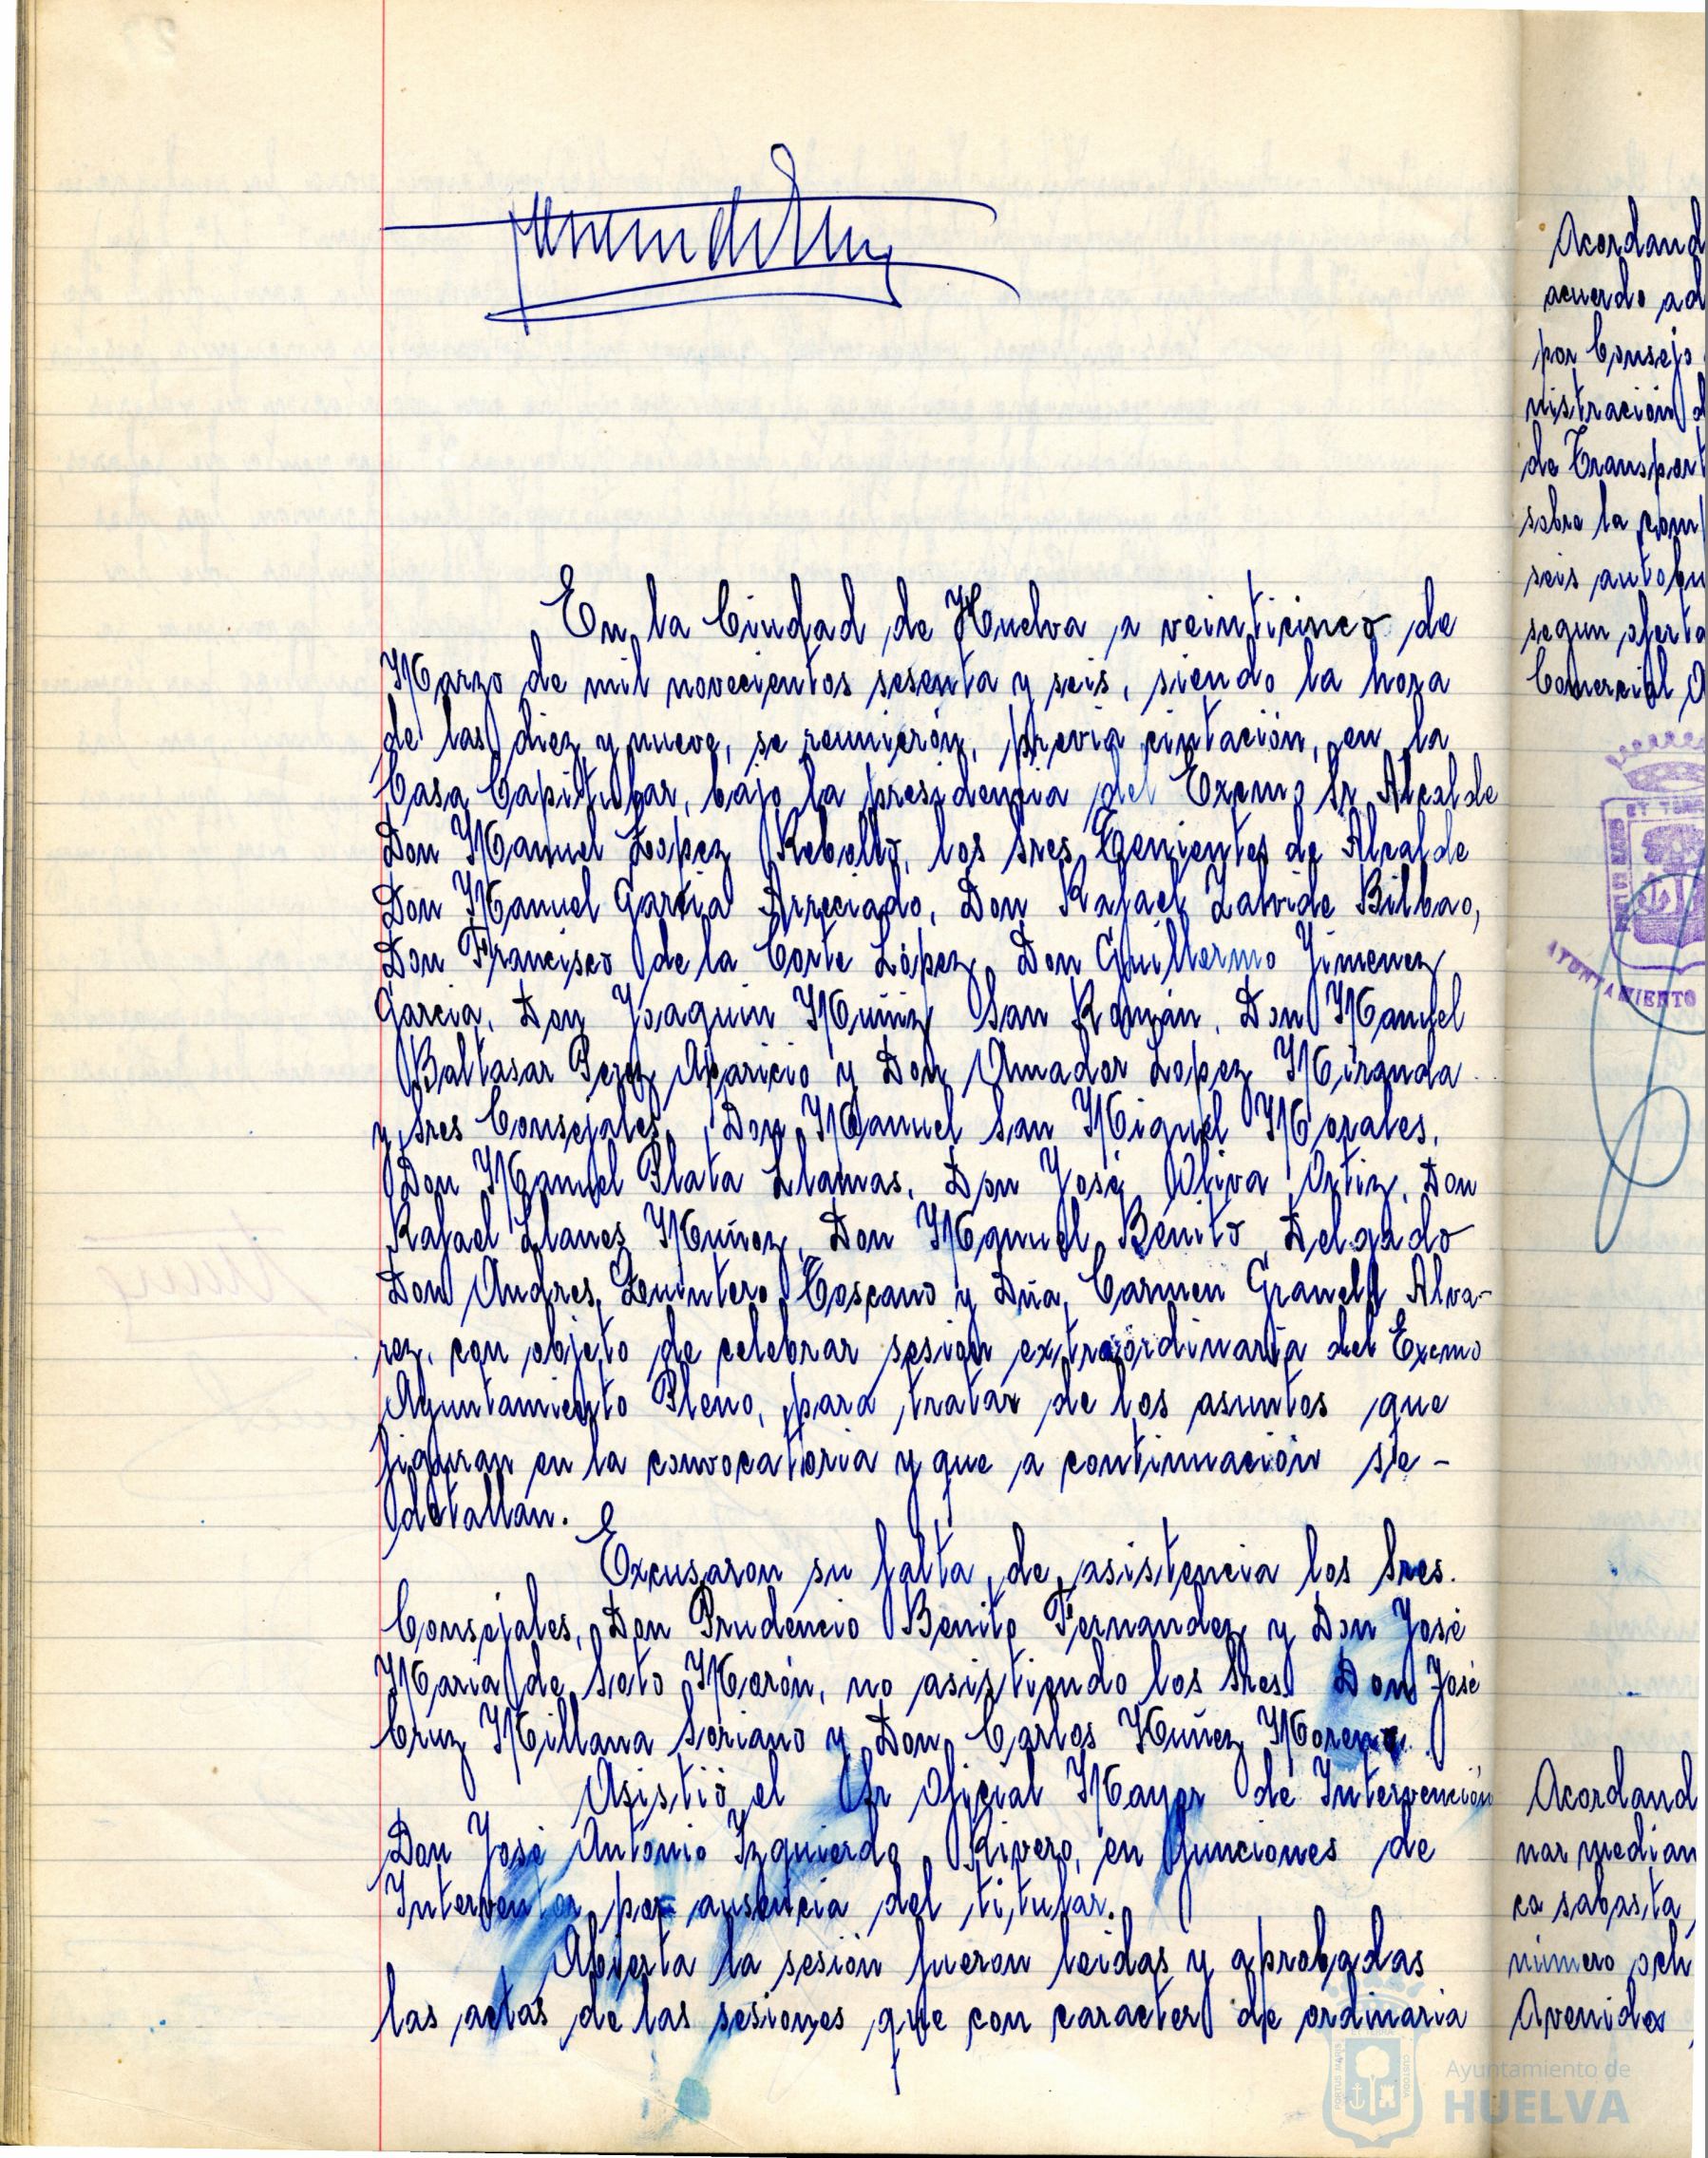 En la Ciudad de Huelva a veinticinco de
Marzo de mil novecientos sesenta y seis, siendo la hora
de las diez y nueve, se reunierón, previa cintación, en la
Casa Capitular, bajo la presidencia del Excmo Sr Alcalde
Don Manuel Lopez Rebollo, los sres Tenientes de Alcalde
Don Manuel Garcia Arreciado, Don Rafael Zalvide Bilbao,
Don Francisco de la Corte López, Don Guillermo Jimenez
Garcia, Don Joaquin Muñiz San Román, Don Manuel
Baltasar Perez Aparicio y Don Amador Lopez Miranda
y sres Consejales, Don Manuel San Miguel Morales,
Don Manuel Plata Llamas, Don José Oliva Ortiz, Don
Rafael Llanes Muñoz, Don Manuel Benito Delgado
Don Andres Quintero Toscano y Dña, Carmen Granell Alva-
rez, con objeto de celebrar sesión extraordinaria del Excmo
Ayuntamiento Pleno, para tratar de los asuntos que
figuran en la convocatoria y que a continuación se-
detallan.
Excusaron su falta de asistencia los Sres.
Consejales, Don Prudencio Benito Fernandez y Don José
Maria de Soto Morón, no asistiendo los Sres Don José
Cruz Millana Soriano y Don Carlos Nuñez Moreno.
Asistió el Sr Oficial Mayor de Intervención
Don José Antonio Izquierdo Rivero, en funciones de
Interventor por ausencia del titular.
Abierta la sesión fueron leidas y aprobadas
las actas de las sesiones que con caracter de ordinaria
Acordand
acuerdo ad
por Consejo
nistración d
de Transport
sobre la com
seis autobu
segun oferta
Comercial
AYUNTAMIENTO
Acordand
nar median
ca sabasta
número och
Avenida
Ayuntamiento de
HUELVA